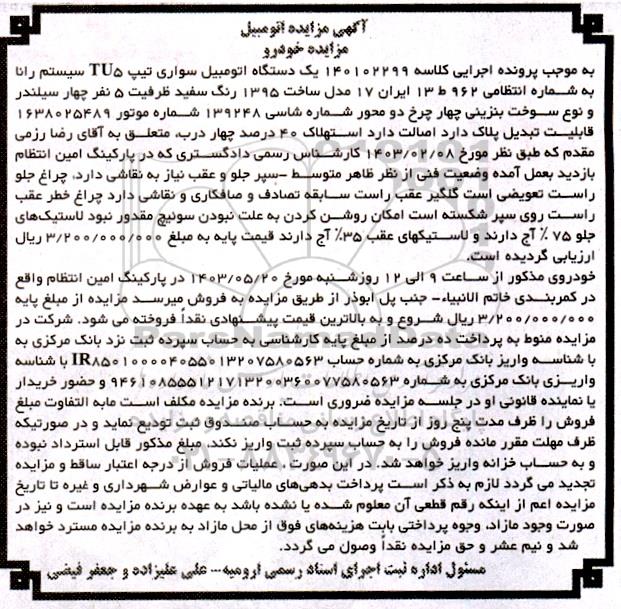 آگهی مزایده اتومبیل
مزایده خودرو
به موجب پرونده اجرایی کلاسه ۱۴۰۱۰۲۲۹۹ یک دستگاه اتومبیل سواری تیپ TU۵ سیستم رانا
به شماره انتظامی ۹۶۲ ط ۱۳ ایران ۱۷ مدل ساخت ۱۳۹۵ رنگ سفید ظرفیت ۵ نفر چهار سیلندر
و نوع سوخت بنزینی چهار چرخ دو محور شماره شاسی ۱۳۹۲۴۸ شماره موتور ۱۶۳۸۰۲۵۴۸۹
قابلیت تبدیل پلاک دارد اصالت دارد استهلاک ۴۰ درصد چهار درب، متعلق به آقای رضا رزمی
مقدم که طبق نظر مورخ ۱۴۰۳/۰۲/۰۸ کارشناس رسمی دادگستری که در پارکینگ امین انتظام
بازدید بعمل آمده وضعیت فنی از نظر ظاهر متوسط -سپر جلو و عقب نیاز به نقاشی دارد، چراغ جلو
راست تعویضی است گلگیر عقب راست سابقه تصادف و صافکاری و نقاشی دارد چراغ خطر عقب
راست روی سپر شکسته است امکان روشن کردن به علت نبودن سوئیچ مقدور نبود لاستیک‌های
جلو ۷۵ ٪ آج دارند و لاستیکهای عقب ۳۵٪ آج دارند قیمت پایه به مبلغ ۳/۲۰۰/۰۰۰/۰۰۰ ریال
ارزیابی گردیده است.
خودروی مذکور از ساعت ۹ الی ۱۲ روز شنبه مورخ ۱۴۰۳/۰۵/۲۰ در پارکینگ امین انتظام واقع
در کمربندی خاتم الانبیاء- جنب پل ابوذر از طریق مزایده به فروش میرسد مزایده از مبلغ پایه
۳/۲۰۰/۰۰۰/۰۰۰ ریال شروع و به بالاترین قیمت پیشنهادی نقداً فروخته می شود. شرکت در
مزایده منوط به پرداخت ده درصد از مبلغ پایه کارشناسی به حساب سپرده ثبت نزد بانک مرکزی به
با شناسه واریز بانک مرکزی به شماره حساب IR۸۵۰۱۰۰۰۰۴۰۵۵۰۱۳۲۰۷۵۸۰۵۶۳ با شناسه
واریزی بانک مرکزی به شماره ۹۴۶۱۰۸۵۵۵۱۲۱۷۱۳۲۰۰۳۶۰۰۷۷۵۸۰۵۶۳ و حضور خریدار
یا نماینده قانونی او در جلسه مزایده ضروری است. برنده مزایده مکلف است مابه التفاوت مبلغ
فروش را ظرف مدت پنج روز از تاریخ مزایده به حساب صندوق ثبت تودیع نماید و در صورتیکه
ظرف مهلت مقرر مانده فروش را به حساب سپرده ثبت واریز نکند، مبلغ مذکور قابل استرداد نبوده
و به حساب خزانه واریز خواهد شد. در این صورت ، عملیات فروش از درجه اعتبار ساقط و مزایده
تجدید می گردد لازم به ذکر است پرداخت بدهی‌های مالیاتی و عوارض شهرداری و غیره تا تاریخ
مزایده اعم از اینکه رقم قطعی آن معلوم شده یا نشده باشد به عهده برنده مزایده است و نیز در
صورت وجود مازاد، وجوه پرداختی بابت هزینه‌های فوق از محل مازاد به برنده مزایده مسترد خواهد
شد و نیم عشر و حق مزایده نقداً وصول می گردد.
مسئول اداره ثبت اجرای اسناد رسمی ارومیه--- علی علیزاده و جعفر فیضی